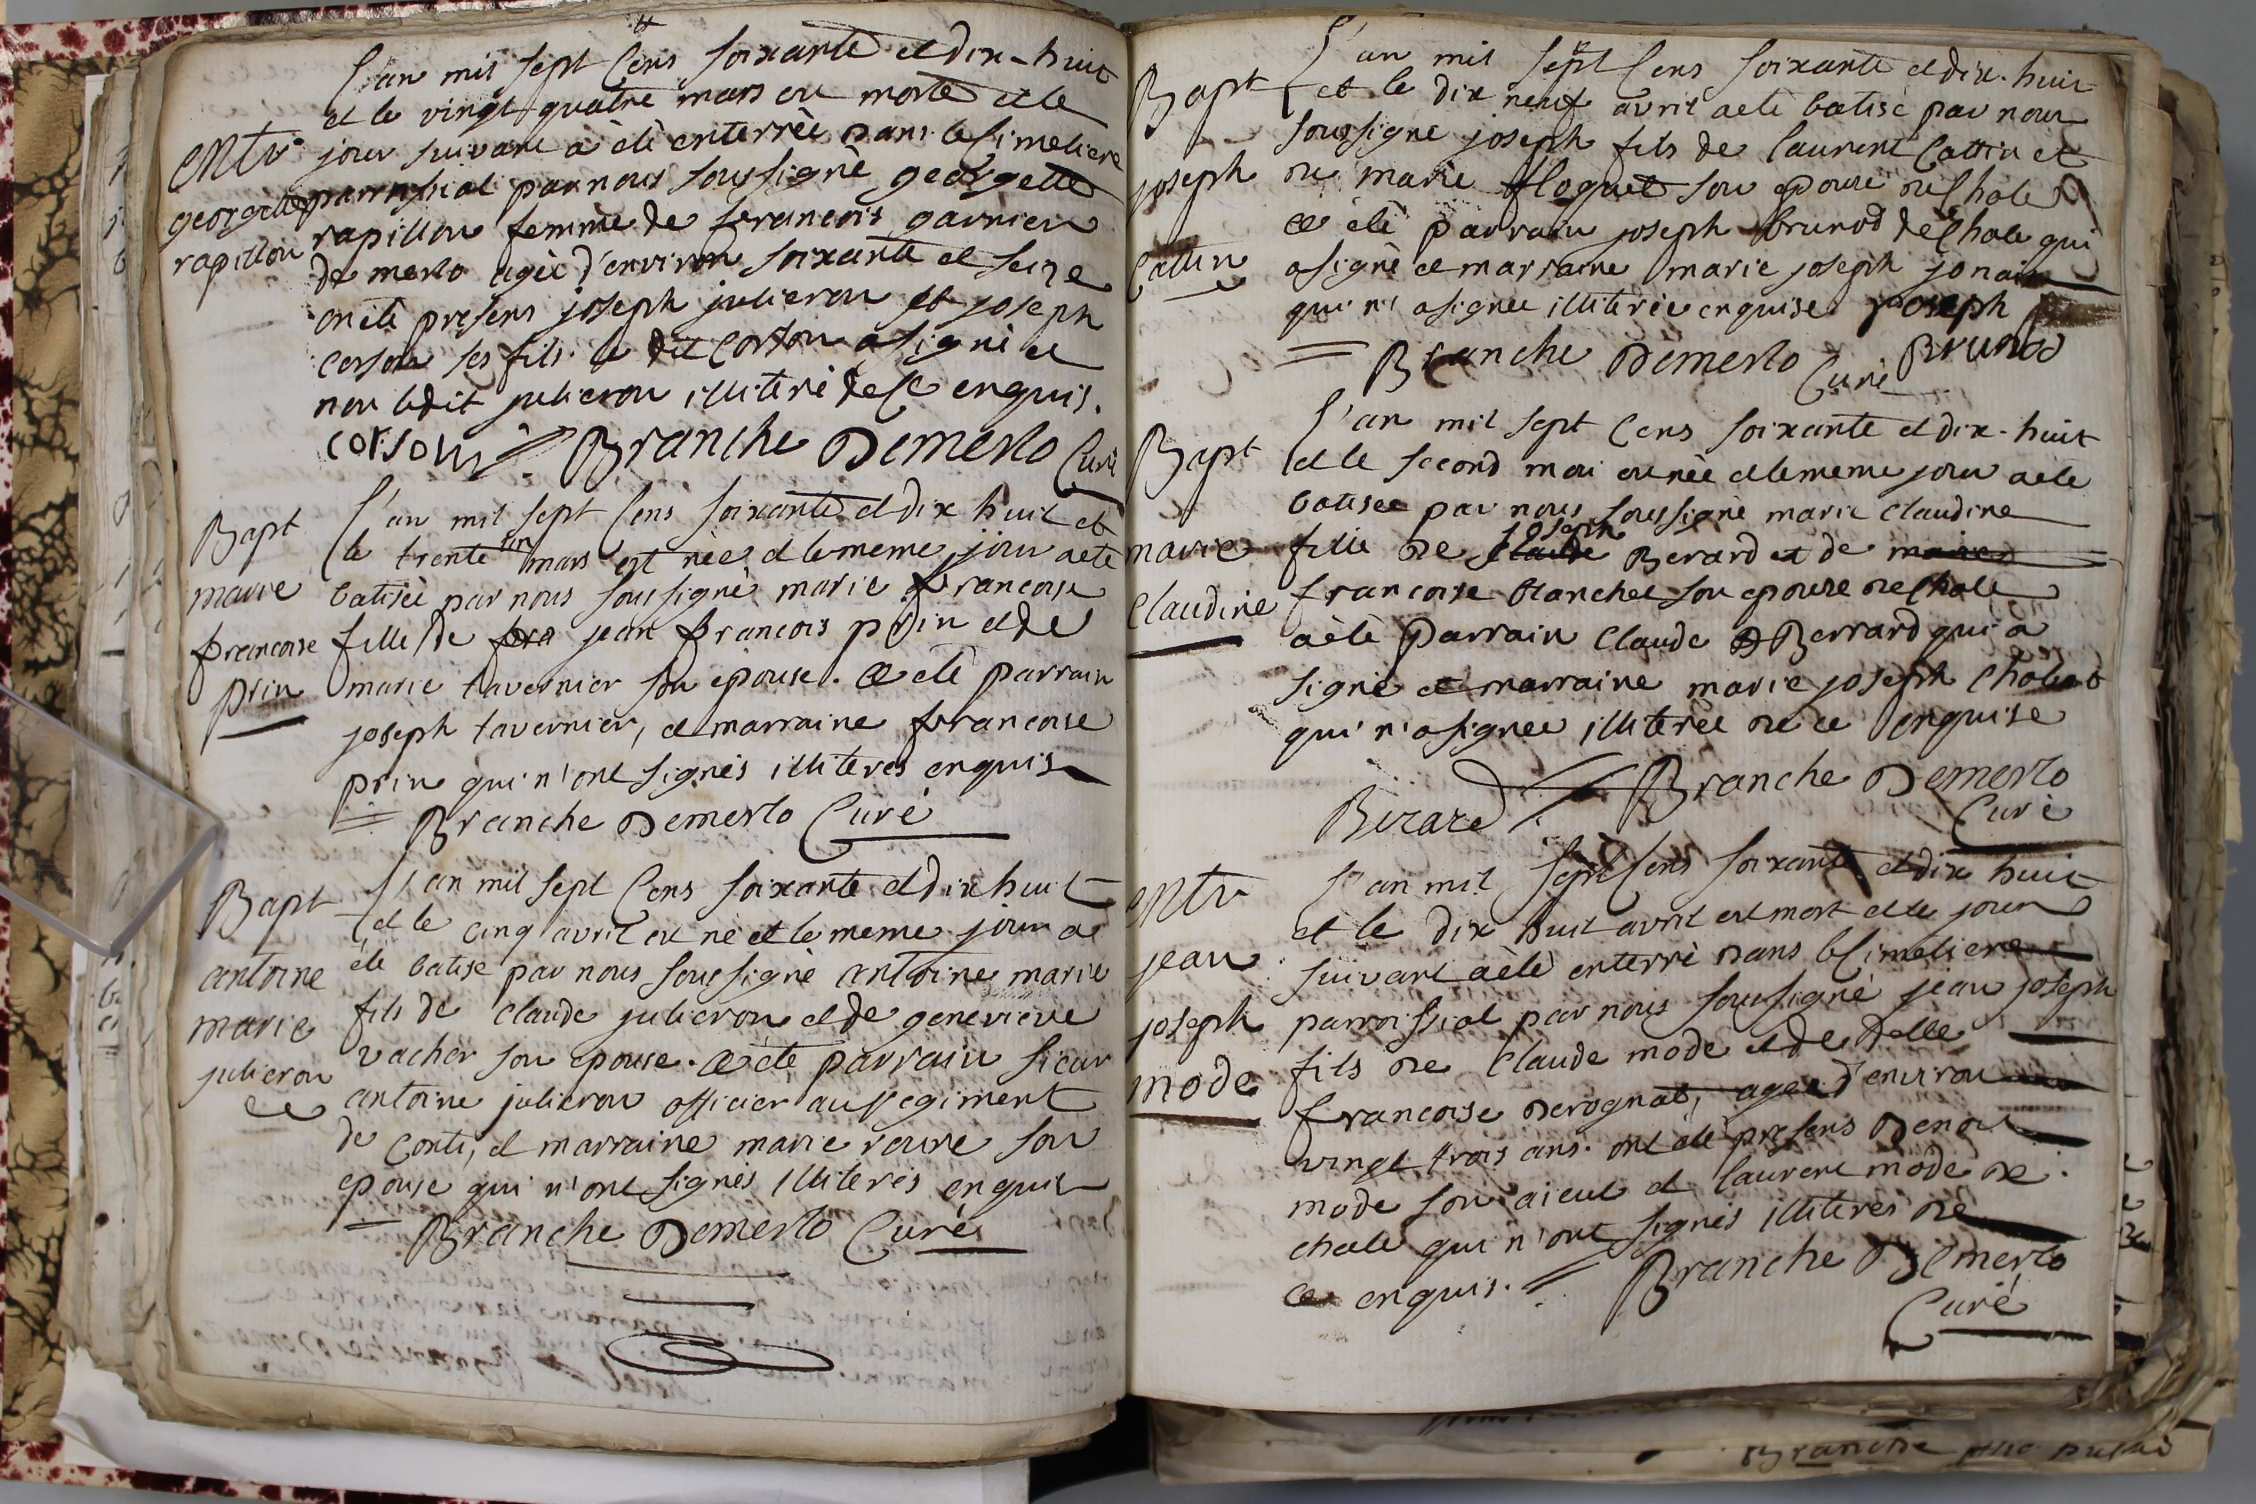 L'an mil sept Cens soixante et dix-huit
et le vingt quatre mars est morte et le
entr
jour suivant à été enterrée dans le Simetiere
georgette
parroissial par nous soussigné georgette
rapillon
rapillon femme de francois garnier
de merlo agée d'environ soixante et seize
ont été presens joseph julieron et joseph
corson ses fils. le dit corson a signé et
non ledit julieron illiteré de ce enquis.
corson Branche Demerlo Curé
Bapt
L'an mil sept Cens soixante et dix huit et
le trente un mars est née et le meme jour a eté
marie
batisée par nous soussigné marie francoise
francoise
fille de jean francois prin et de
prin
marie tavernier son epouse. a eté parrain
joseph tavernier, et marraine francoise
prin qui n'ont signés illiterés enquis
Branche Demerlo Curé
Bapt
L'an mil sept Cens soixante et dix huit
et le cinq avril est né et le meme jour a
antoine
été batisé par nous soussigné antoine marie
marie
fils de claude julieron et de genevieve
julieron
vacher son epouse. a été parrain sieur
antoine julieron officier au regiment
de conti, et marraine marie roure son
epouse qui n'ont signés illiterés enquis
Branche Demerlo Curé
Bapt
L'an mil sept Cens soixante et dix-huit
et le dix neuf avril a eté batisé par nous
joseph
soussigné joseph fils de laurent Cattin et
de marie floquet son epouse de Chole
Cattin
a été parrain joseph brunod de Chole qui
a signé et marraine marie joseph jonain
qui n'a signée illiterée enquise joseph
Branche Demerlo Curé Brunod
Bapt
L'an mil sept Cens soixante et dix-huit
et le second mai est née et le meme jour a eté
batisée par nous soussigné marie claudine
marie
fille de claude joseph Berard et de
claudine
francoise blanchet son epouse de Chole
a été parrain Claude Berrard qui a
signé et marraine marie joseph
qui n'a signée illiterée de ce enquise
Berard Branche Demerlo
Curé
entr
L'an mil sept Cens soixante et dix huit
et le dix huit avril est mort et le jour
jean
suivant a été enterré dans le Simetiere
joseph
parroissial par nous soussigné jean joseph
mode
fils de claude mode et de delle
francoise derognat, agé d'environ
vingt trois ans. ont été presens Benoit
mode son aieul et laurent mode de
chole qui n'ont signés illiterés de
ce enquis. Branche Demerlo
Curé
Branche